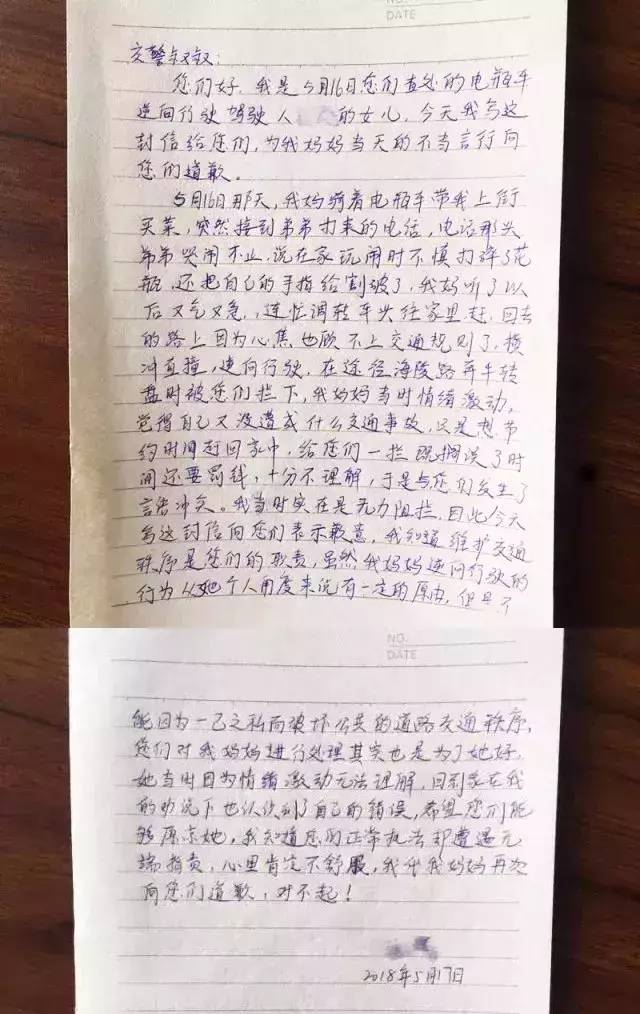 DATE
交警叔叔：
您们好，我是5月16日您们查处的电瓶车
逆向行驶驾驶人 的女儿，今天我写这
封信给您们，为我妈妈当天的不当言行向
您们道歉。
5月16日那天，我妈骑着电瓶车带我上街
买菜，突然接到弟弟打来的电话，电话那头
弟弟哭闹不止，说在家玩闹时不慎打碎了花
瓶，还把自己的手指给割破了，我妈听了以
后又气又急，连忙调转车头往家里赶，回去
的路上因为心焦也顾不上交通规则了，横
冲直撞，逆向行驶，在途径海陵路奔牛转
盘时被您们拦下，我妈妈当时情绪激动，
觉得自己又没造成什么交通事故，只是想节
约时间赶回家中，给您们一拦既搁误了时
间还要罚钱，十分不理解，于是与您们发生了
言语冲突。我当时实在是无力阻拦，因此今天
写这封信向您们表示歉意，我知道维护交通
秩序是您们的职责，虽然我妈妈逆向行驶的
行为从她个人角度来说有一定的原由，但是不
NO.
DATE
能因为一己之私而破坏公共的道路交通秩序，
您们对我妈妈进行处理其实也是为了她好，
她当时因为情绪激动无法理解，回到家在我
的劝说下也认识到了自己的错误，希望您们能
够原谅她，我知道您们正常执法却遭遇无
端指责，心里肯定不舒服，我代我妈妈再次
向您们道歉，对不起！
2018年5月17日